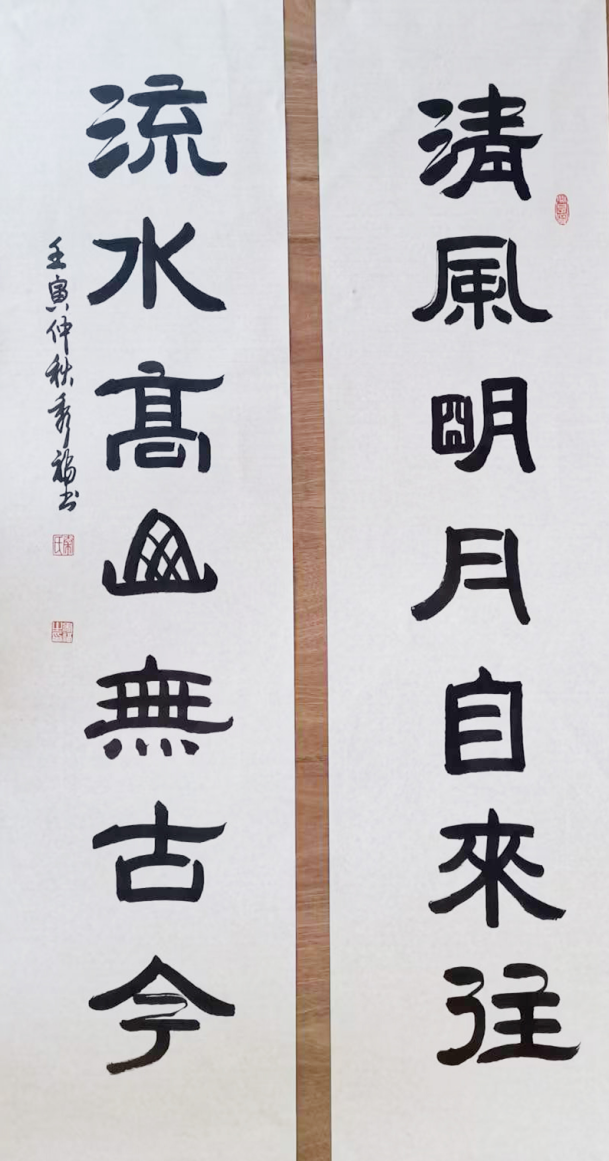 清風明月自來往
流水高山無古今
壬寅仲秋秀福书